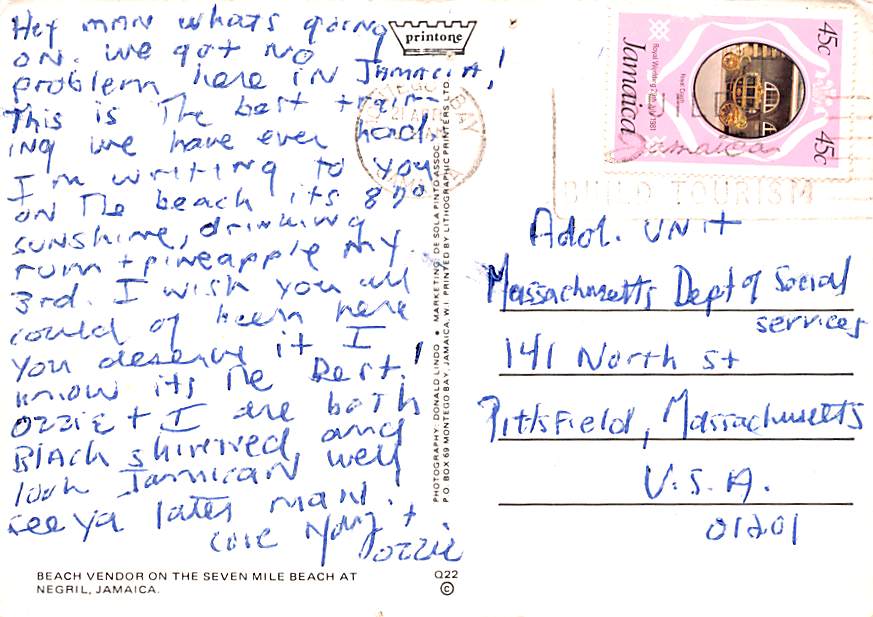 Hey man whats going
on. We got no
problem here in JAMACIA!
This is The best train-
ing we have ever had.
I'm writing to you
on The beach its 870
sunshine, drinking
rum + pineapple my
3rd. I wish you all
could of been here
you deserve it I
know its The Best!
Ozzie + I are both
Black skinned, and
look Jamican well
see ya later man!
Love +
Ozzie
printone
PHOTOGRAPHY: DONALD LINDO • MARKETING: DE SOLA PINTO ASSOC.
P O BOX 69 MONTEGO BAY, JAMAICA, W.I. PRINTED BY LITHOGRAPHIC PRINTERS LTD.
BAY
21 AP
Jamaica
Royal Wedding 29th July 1981
45c
45c
Jamaica
BUILD TOURISM
Adol. UNit
Massachusetts Dept of Social
services
141 North st
Pittsfield, Massachusetts
U.S.A.
01201
BEACH VENDOR ON THE SEVEN MILE BEACH AT
NEGRIL, JAMAICA.
Q22
©